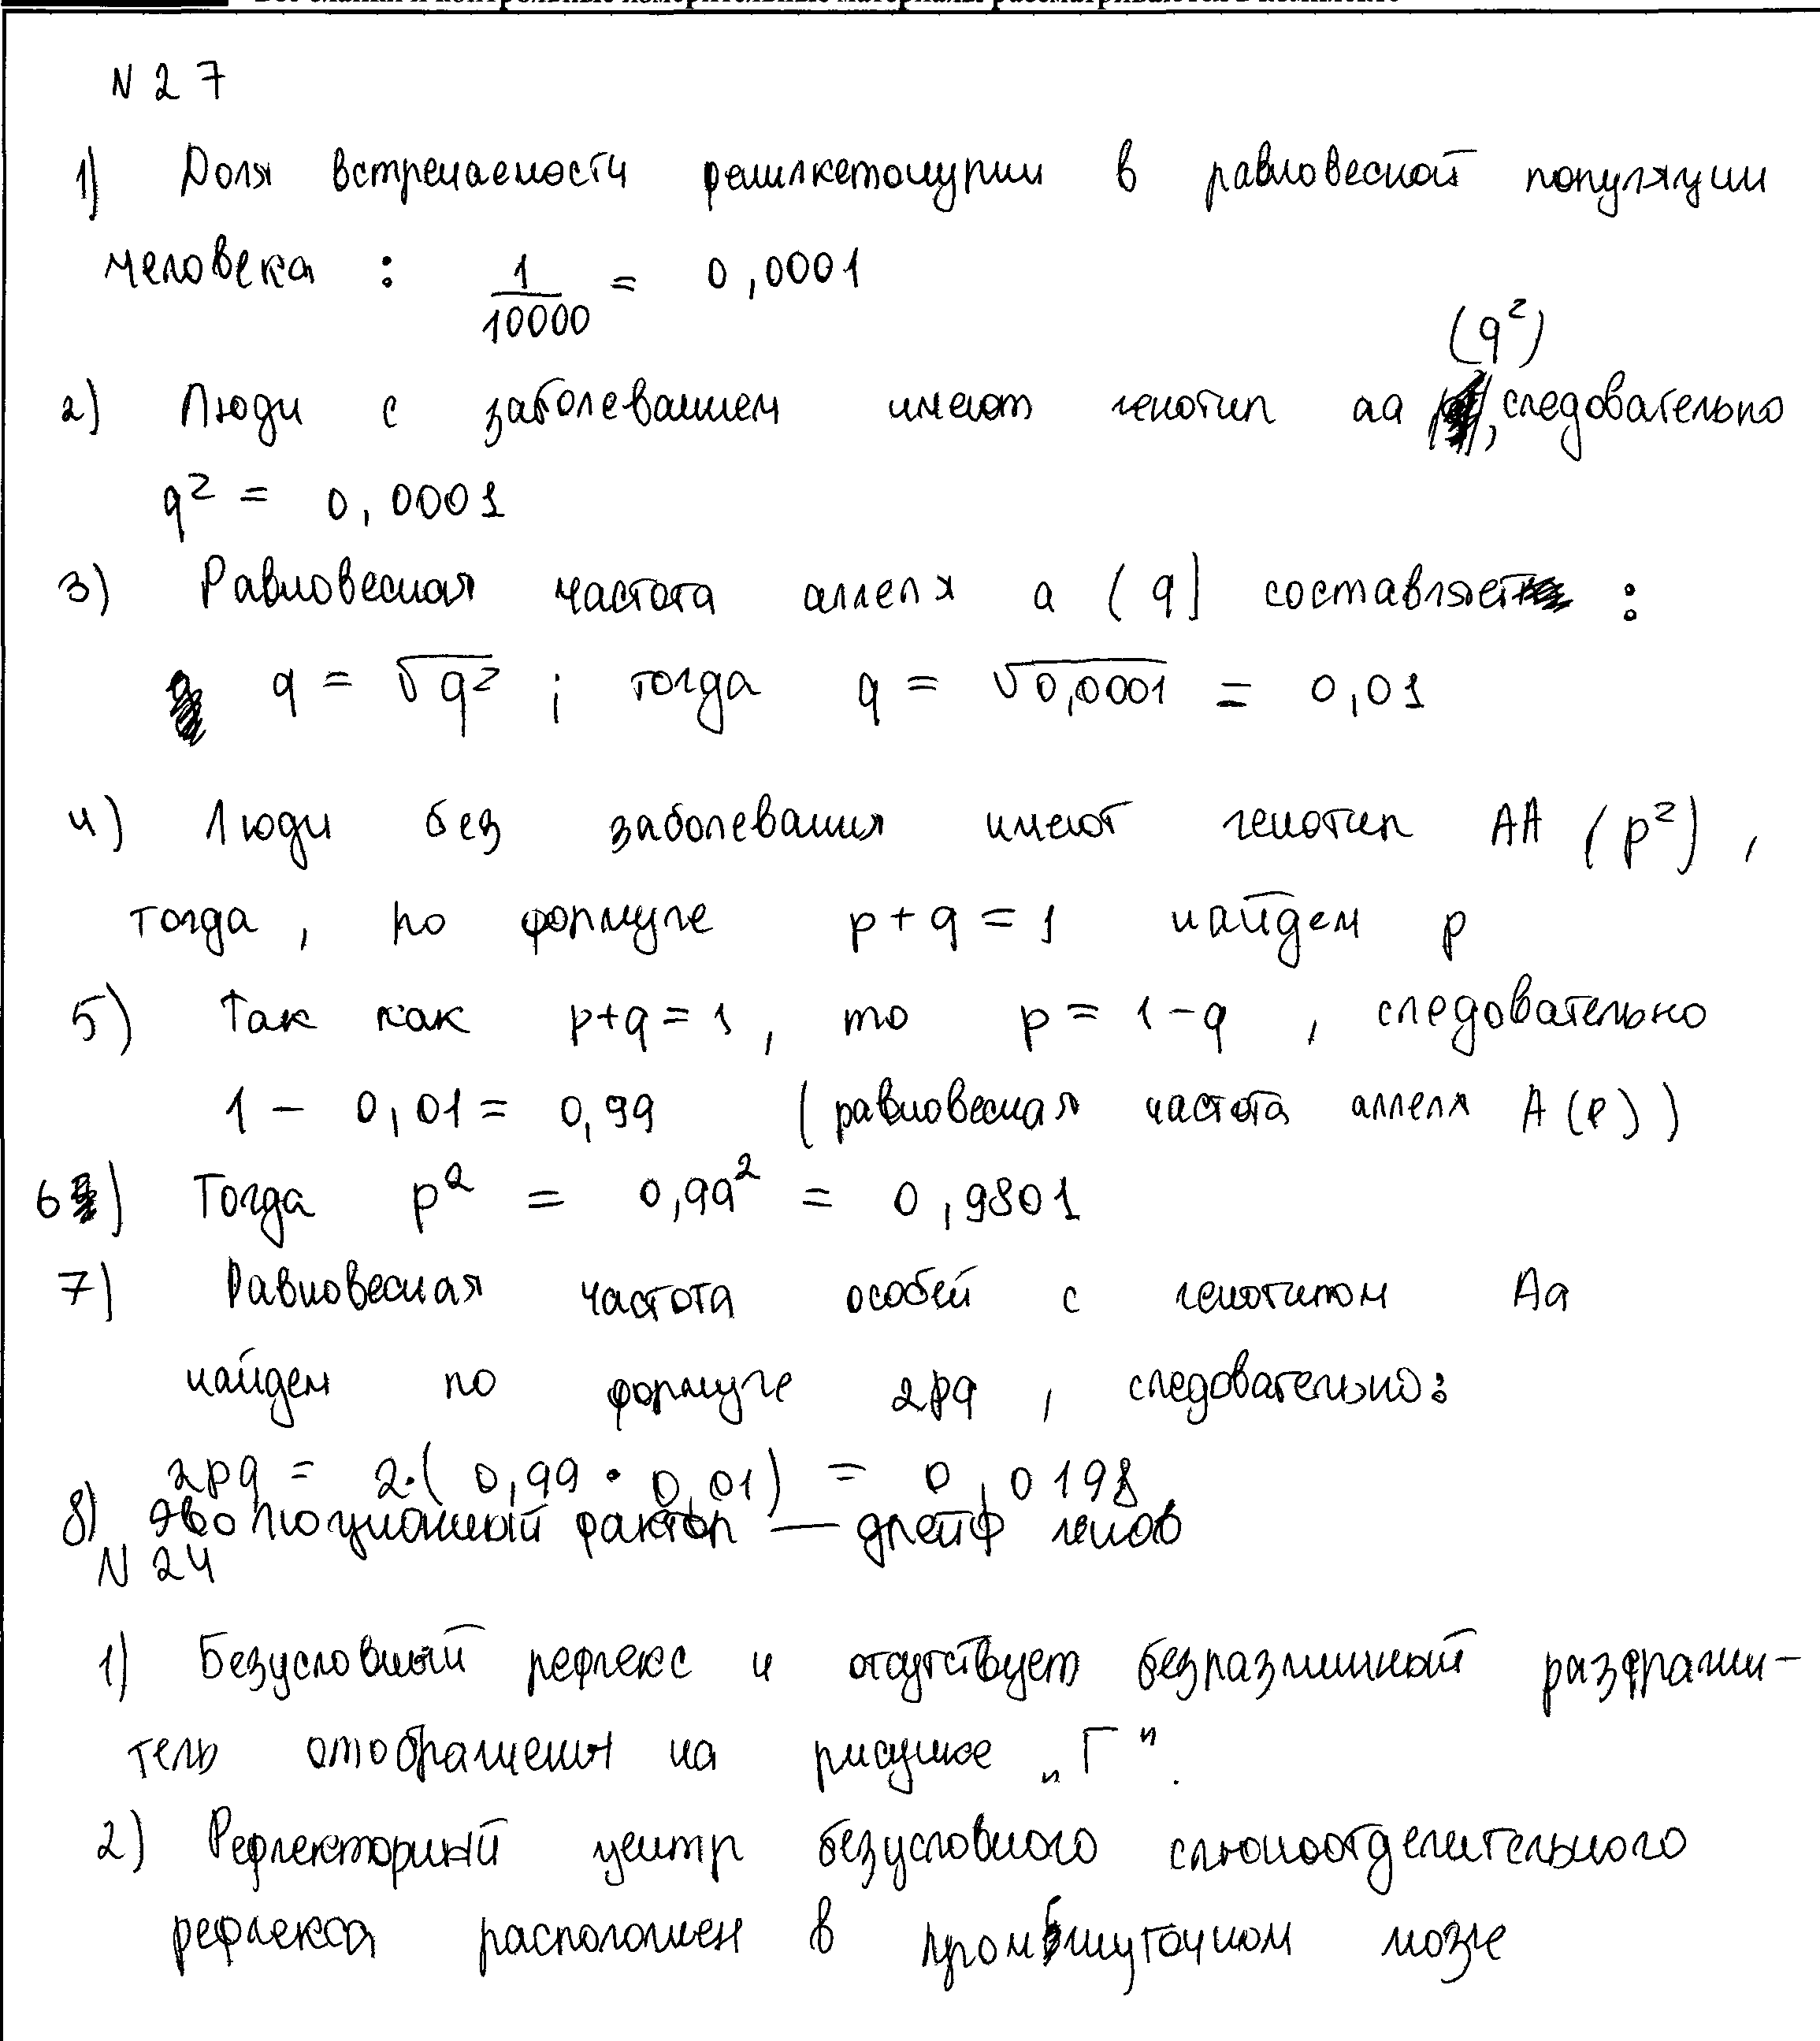 Все бланки и контрольные измерительные материалы рассматриваются в комплекте
N 27
1) Доля встречаемости фенилкетонурии в равновесной популяции
человека : 1/10000 = 0,0001
2) Люди с заболеванием имеют генотип аа (q²), следовательно
q² = 0,0001
3) Равновесная частота аллеля а (q) составляет :
q = √q² ; тогда q = √0,0001 = 0,01
4) Люди без заболевания имеют генотип АА (p²) ,
тогда , по формуле p + q = 1 найдем p
5) Так как p+q = 1 , то p = 1 - q , следовательно
1 - 0,01 = 0,99 (равновесная частота аллеля А (p) )
6) Тогда p² = 0,99² = 0,9801
7) Равновесная частота особей с генотипом Аа
найдем по формуле 2pq , следовательно:
2pq = 2·( 0,99 · 0,01) = 0,0198
8) Эволюционный фактор — дрейф генов
N 24
1) Безусловный рефлекс и отсутствует безразличный раздражи-
тель отображены на рисунке „Г".
2) Рефлекторный центр безусловного слюноотделительного
рефлекса расположен в промежуточном мозге